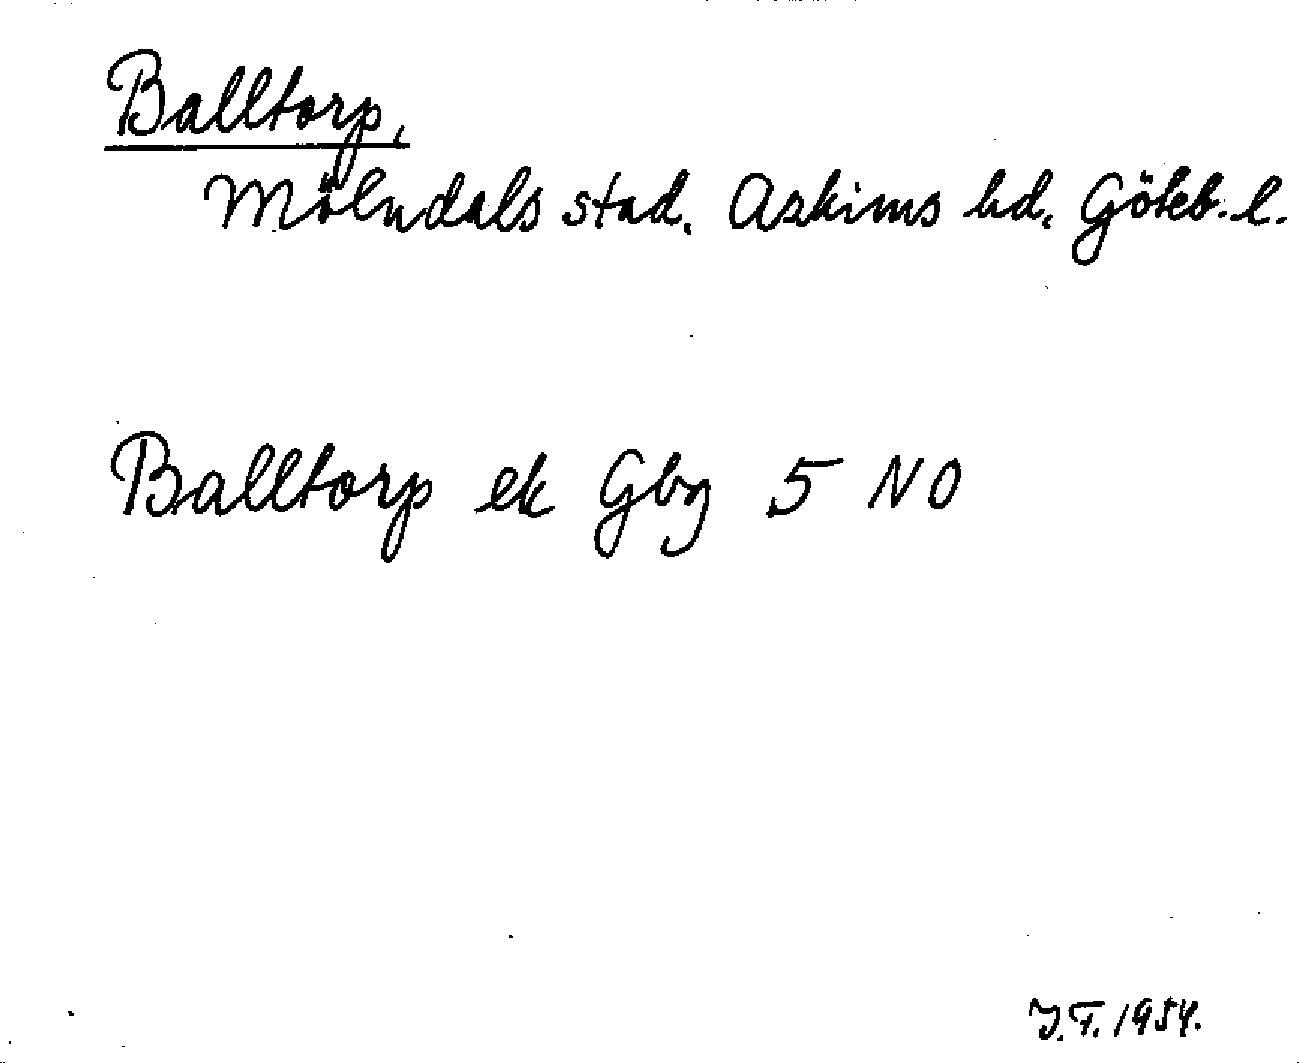 Balltorp,
Mölndals stad. Askims hd, Göteb. l.
Balltorp ek Gbg 5 NO
J.F. 1954.